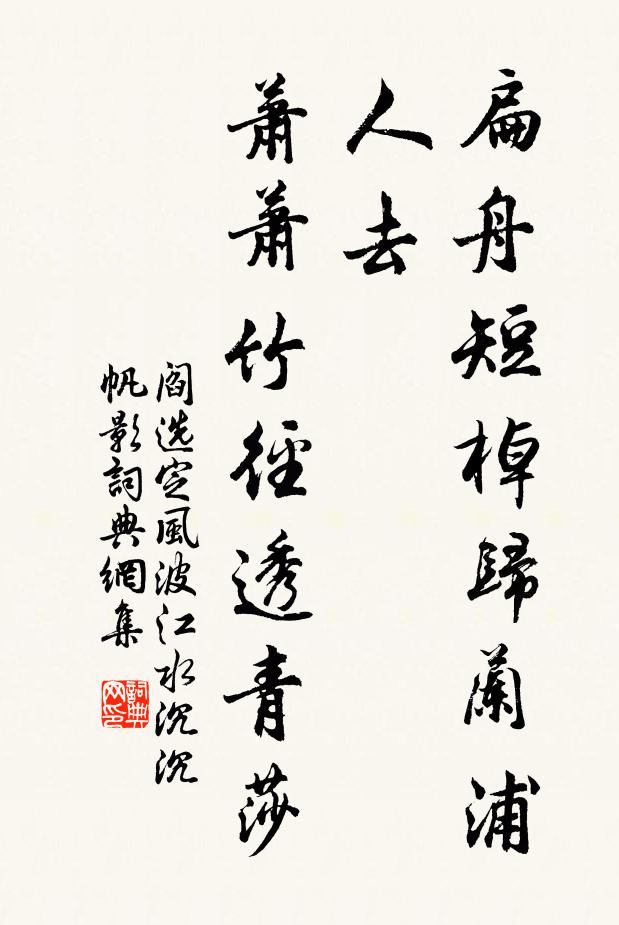 扁舟短棹歸蘭浦
人去
蕭蕭竹徑透青莎
閻选定風波江水沉沉
帆影詞典網集
詞典
网印